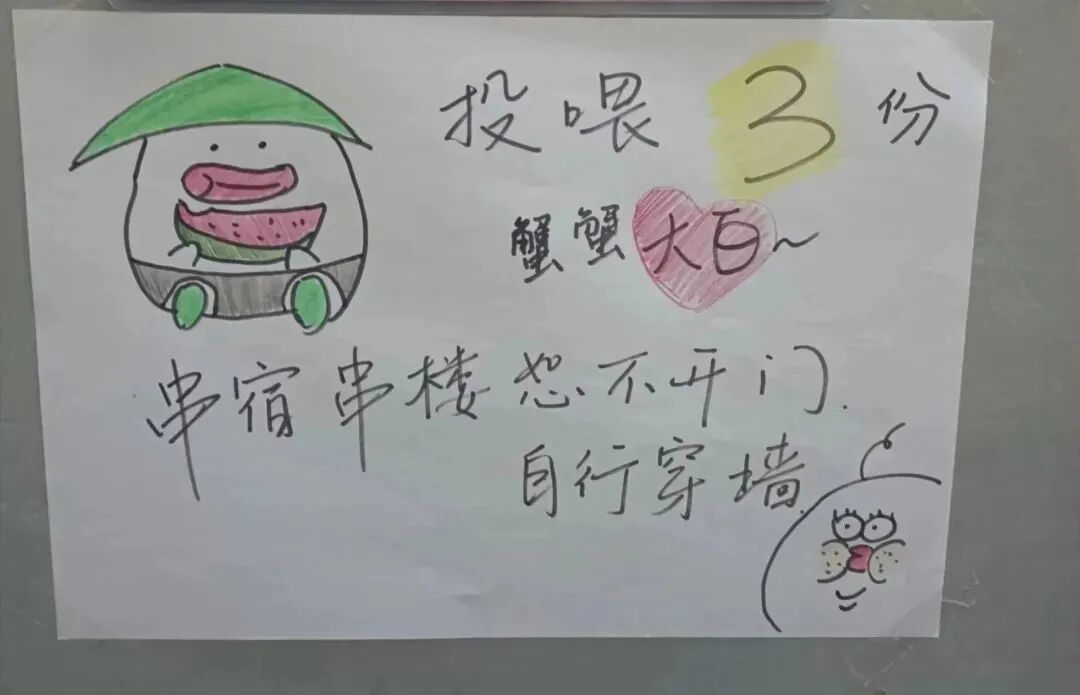 投喂 3 份
蟹蟹大白~
串宿串楼恕不开门.
自行穿墙.